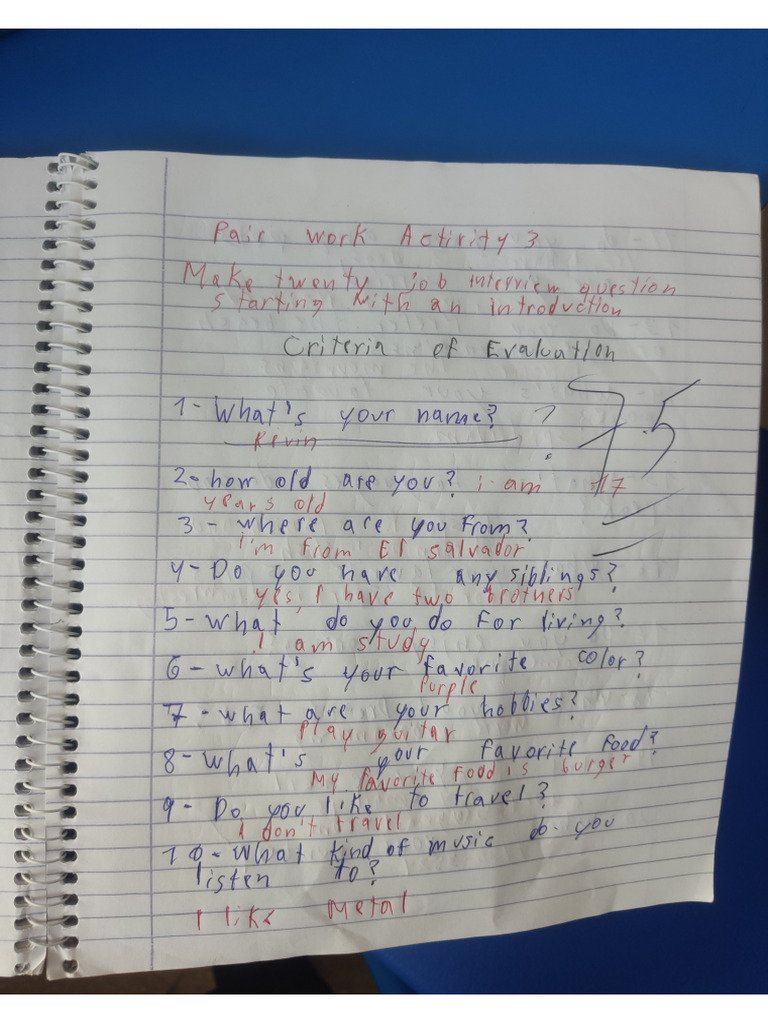 Pair work Activity 3
Make twenty job interview question
starting with an introduction
Criteria of Evaluation
1- What's your name? ?
Kevin
7.5
2- how old are you? i am 17
years old
3- where are you from?
I'm from El salvador
4- Do you have any siblings?
yes, I have two brothers
5- what do you do for living?
I am study
6- what's your favorite color?
Purple
7- what are your hobbies?
Play guitar
8- what's your favorite food?
My favorite food is burger
9- Do you like to travel?
I don't travel
10- what kind of music do you
listen to?
I like Metal